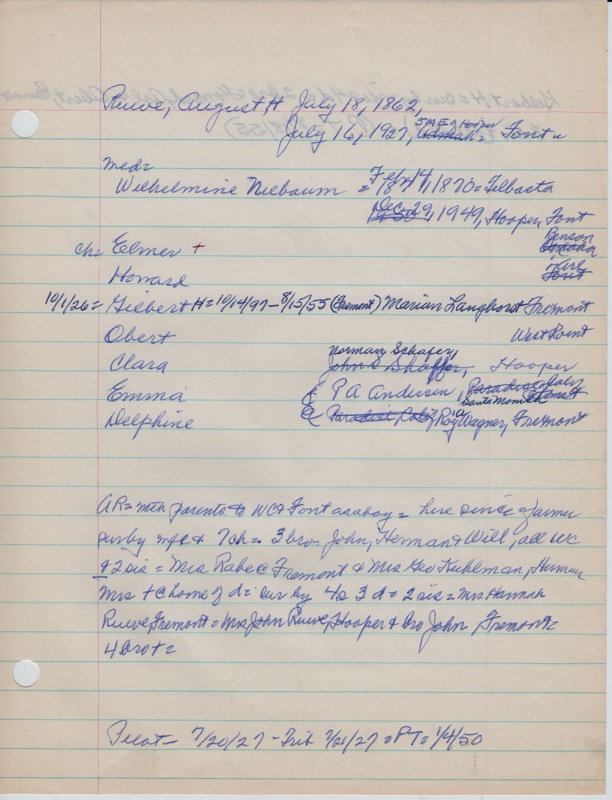 Ruwe, August H July 18, 1862,
July 16, 1927, 5 M E 7 Hooper Font =
med=
Wilhelmine Niebaum = Feb 14, 1870 = Tilbasta
Dec. 29, 1949, Hooper, Font
ch= Elmer + Benson
Howard
10/1/26= Gilbert H = 10/14/97 - 8/15/55 (Fremont) Marian Langhorst Fremont
Obert West Point
Clara Norman Schafer, Hooper
John Shaffer,
Emma P A Andersen, Santa Monica
Delphine Paradise, Calif, Roy Wagner, Fremont
AR= with parents to WC & Font as a boy = here since a farmer
sur by wife & 7 ch = 3 bro John, Herman & Will, all WC
& 2 sis = Mrs Rabe @ Fremont & Mrs Geo Kuhlman, Herman
Mrs + @ home of d = sur by 4 s 3 d = 2 sis = Mrs Hannah
Ruwe, Fremont = Mrs John Ruwe, Hooper & bro John, Fremont =
4 bro + =
7/20/27 - Trib 7/21/27 = PT = 1/4/50